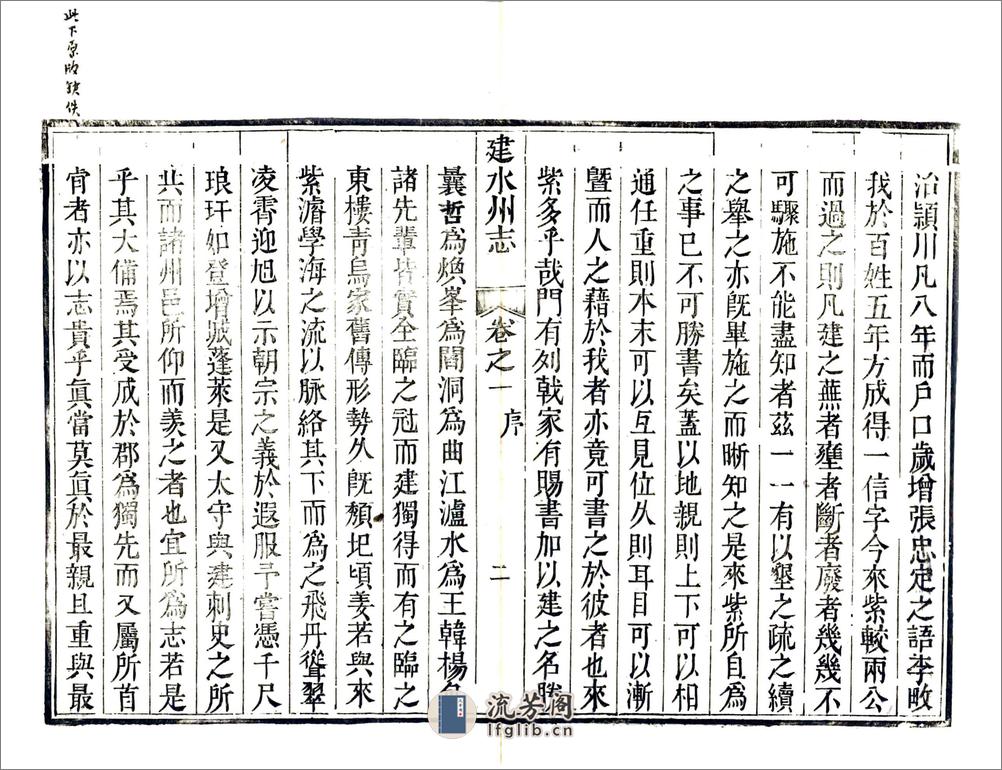 此下原版鈌佚
治潁川凡八年而戶口歲增張忠定之語李畋
我於百姓五年方成得一信字今來紫較兩公
而過之則凡建之蕪者壅者斷者廢者幾幾不
可驟施不能盡知者茲一一有以墾之疏之續
之舉之亦旣畢施之而晰知之是來紫所自爲
之事已不可勝書矣蓋以地親則上下可以相
通任重則本末可以互見位久則耳目可以漸
曁而人之藉於我者亦竟可書之於彼者也來
紫多乎哉門有列戟家有賜書加以建之名勝
建水州志 卷之一 序 二
曩哲爲煥峯爲閣洞爲曲江瀘水爲王韓楊
諸先輩皆實全臨之冠而建獨得而有之臨之
東樓靑烏家舊傳形勢久旣頽圮頃姜若與來
紫濬學海之流以脉絡其下而爲之飛丹聳翠
凌霄迎旭以示朝宗之義於遐服予嘗憑千尺
琅玕如登增城蓬萊是又太守與建刺史之所
共而諸州邑所仰而羙之者也宜所爲志若是
乎其大備焉其受成於郡爲獨先而又屬所首
肯者亦以志貴乎眞當莫眞於最親且重與最
流芳阁
lfglib.cn